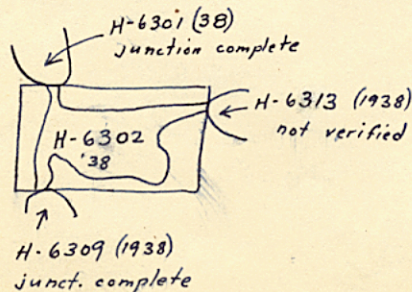 H-6301 (38)
junction complete
H-6313 (1938)
not verified
H-6302
'38
H-6309 (1938)
junct. complete